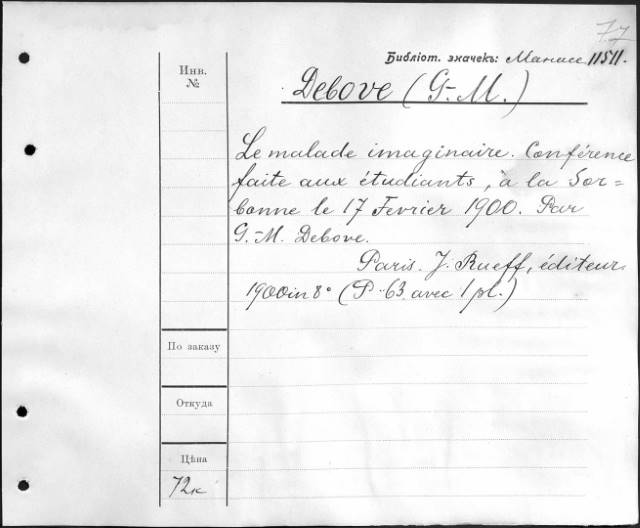 77
Библіот. значекъ: Манасс 11511.
Инв.
№
Debove (G.-M.)
Le malade imaginaire. Conférence
faite aux étudiants, à la Sor=
bonne le 17 Fevrier 1900. Par
G.-M. Debove.
Paris. J. Rueff, éditeur
1900 in 8° (P. 63 avec 1 pl.)
По заказу
Откуда
Цѣна
72к